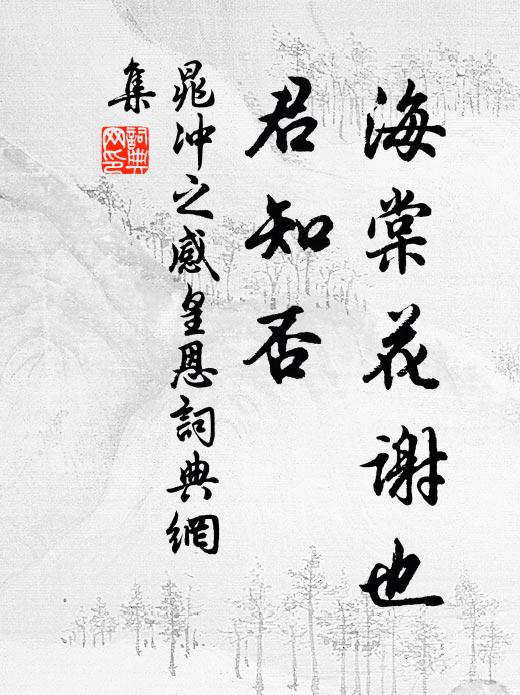 海棠花谢也
君知否
晁冲之感皇恩詞典網
集
詞典網